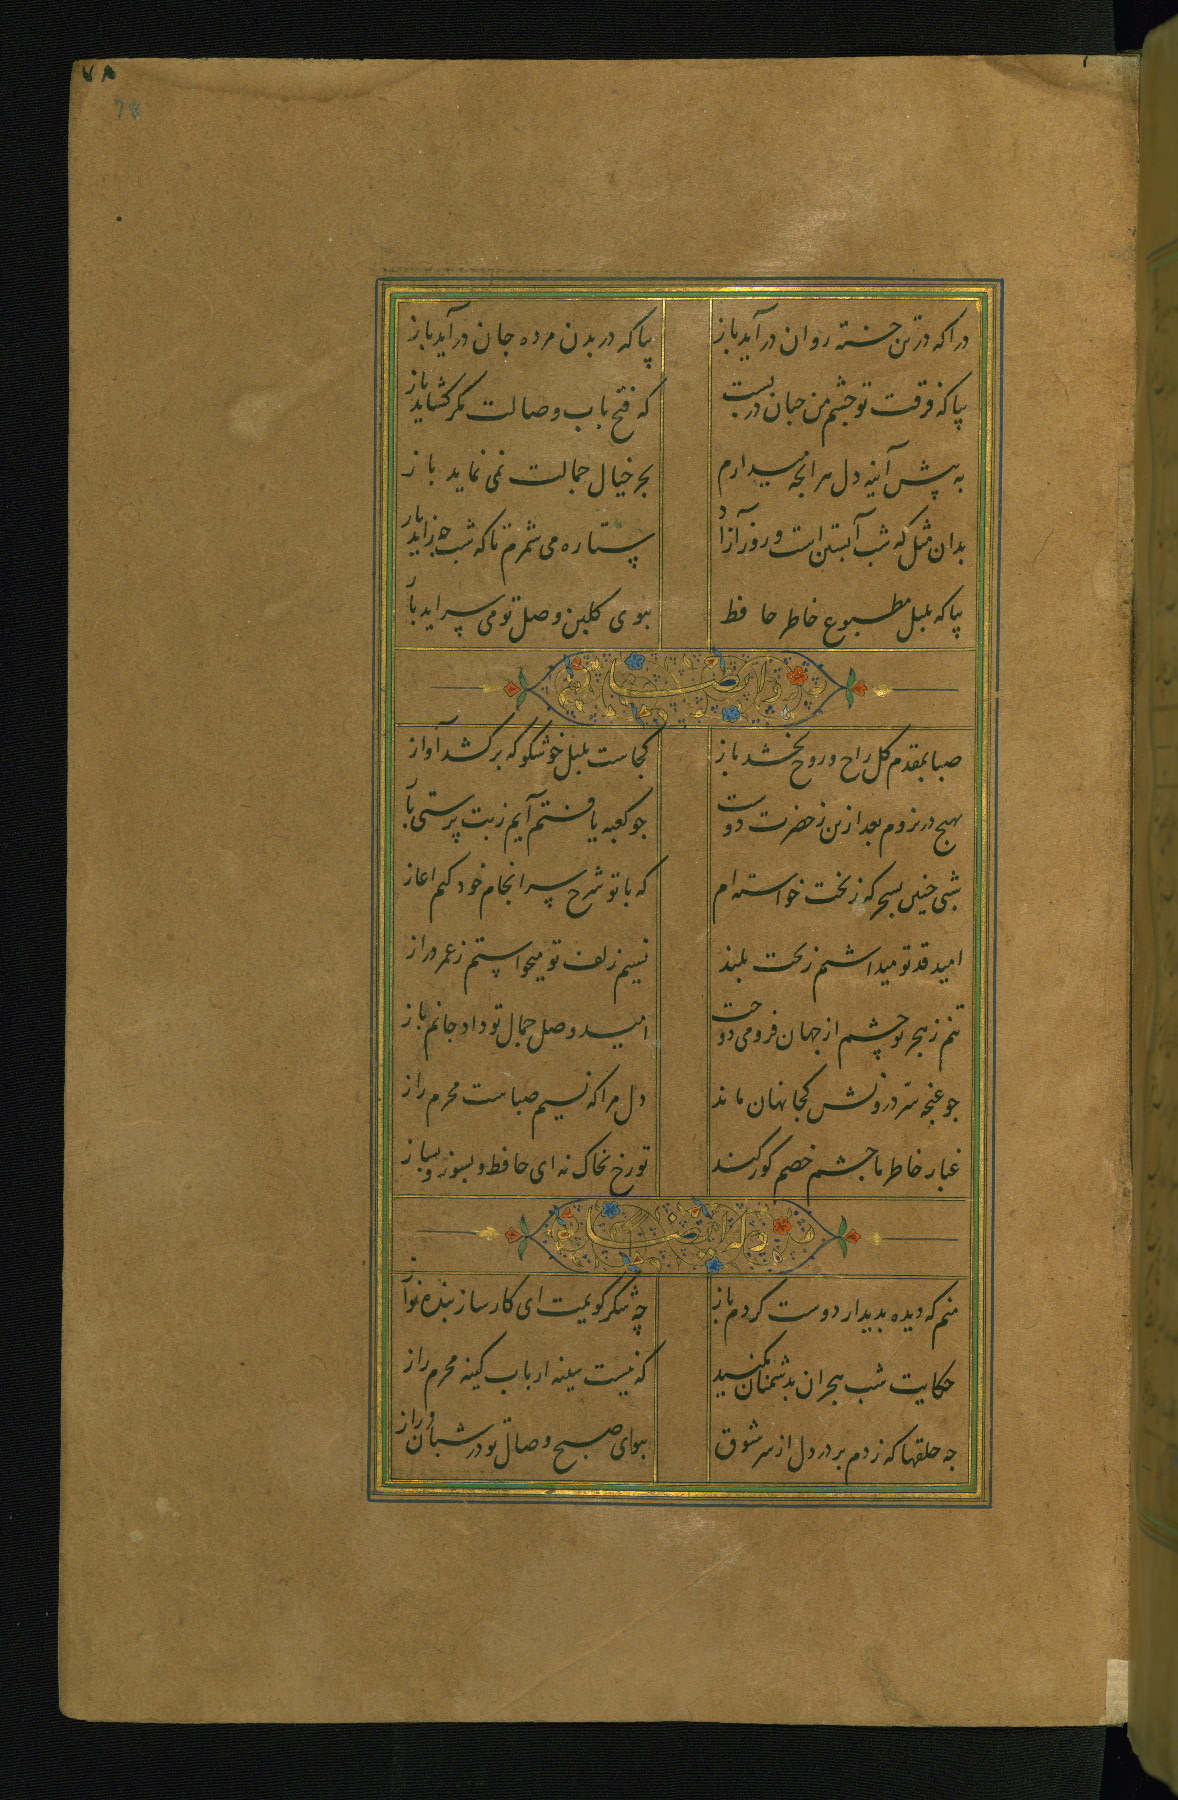 ۷۸
78
درا که در تن خسته روان درآید باز
بیا که در بدن مرده جان درآید باز
بیا که فرقت تو چشم من چنان در بست
که فتح باب وصالت مکر کشاید باز
به پیش آینه دل هر آنچه میدارم
بجز خیال جمالت نمی نماید باز
بدان مثل که شب آبستن است و روز آزاد
ستاره می شمرم تا که شب چه زاید باز
بیا که بلبل مطبوع خاطر حافظ
ببوی کلبن وصل تو می سراید باز
وله ایضا
صبا بمقدم کل راح و روح بخشد باز
کجاست بلبل خوشکو که برکشد آواز
بهیچ در نروم بعد ازین ز حضرت دوست
جو کعبه یافتم آیم ز بت پرستی باز
شبی جنین بسحر که ز بخت خواسته ام
که با تو شرح سرانجام خود کنم اغاز
امید قد تو میداشتم ز بخت بلند
نسیم زلف تو میخواستم ز عمر دراز
تنم ز هجر تو چشم از جهان فرو می دوخت
امید وصل جمال تو داد جانم باز
جو غنجه سر درونش کجا نهان ماند
دل مرا که نسیم صباست محرم راز
غبار خاطر ما جشم خصم کور کند
تو رخ بخاک نه ای حافظ و بسوز و بساز
وله ایضا
منم که دیده بدیدار دوست کردم باز
چه شکر کویمت ای کارساز بنده نواز
حکایت شب هجران بدشمنان مکنید
که نیست سینه ارباب کینه محرم راز
جه حلقها که زدم بر در دل از سر شوق
ببوای صبح وصال تو در شبان دراز